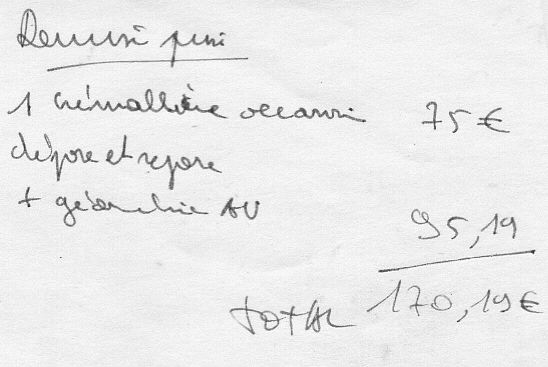 1 crémaillère occasion 75€
dépose et repose
+ géométrie AV
95,19
TOTAL 170,19€